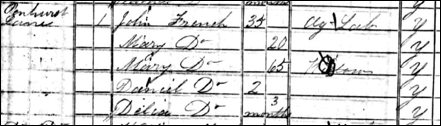 Penhurst 1 John French 35 Ag Lab Y
Lane Mary Do 20 Y
Mary Do 65 Y
Daniel Do 2 Y
Delia Do 3 months Y